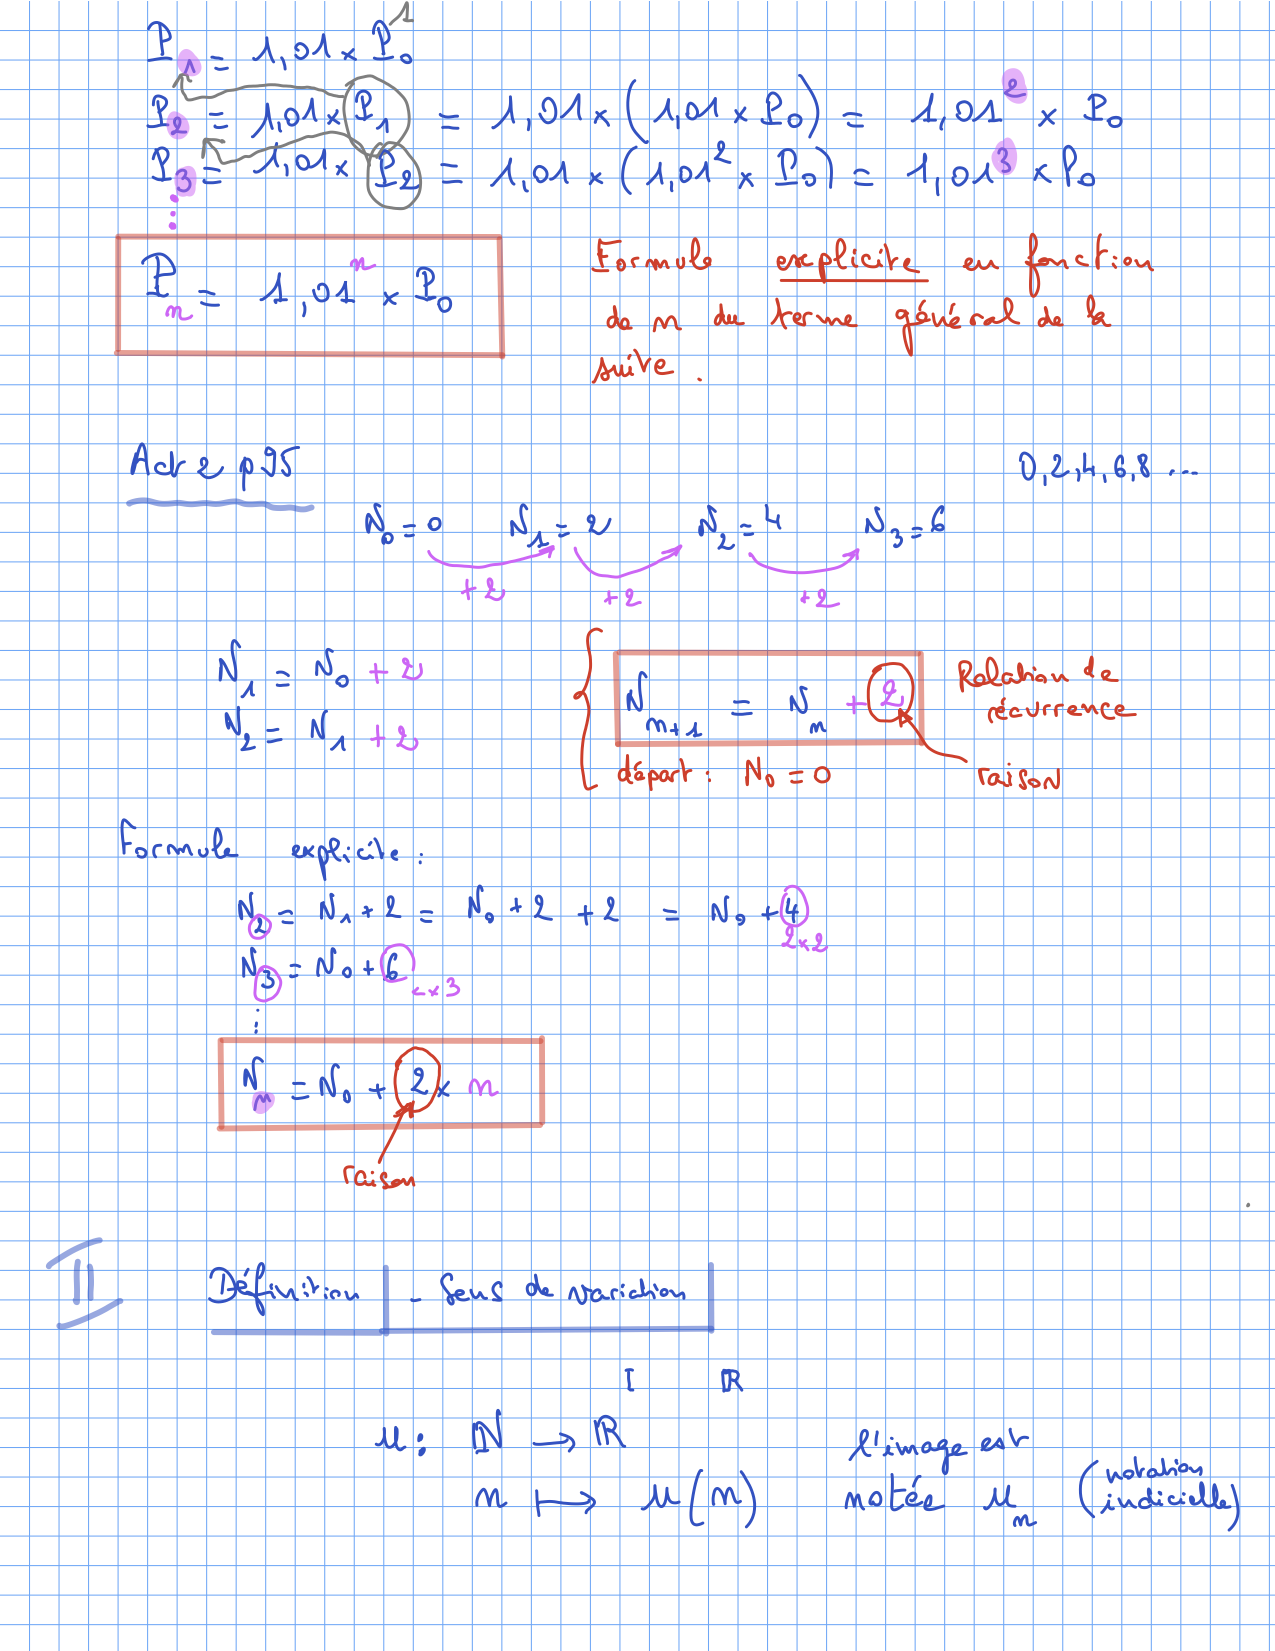 P₁ = 1,01 × P₀ 1
P₂ = 1,01 × P₁ = 1,01 × (1,01 × P₀) = 1,01² × P₀
P₃ = 1,01 × P₂ = 1,01 × (1,01² × P₀) = 1,01³ × P₀
⋮
Pₙ = 1,01ⁿ × P₀
Formule explicite en fonction
de n du terme général de la
suite.
Act 2 p 95
0, 2, 4, 6, 8 ...
N₀ = 0 N₁ = 2 N₂ = 4 N₃ = 6
+2 +2 +2
N₁ = N₀ + 2
N₂ = N₁ + 2
Nₙ₊₁ = Nₙ + 2
Relation de
récurrence
départ : N₀ = 0
raison
Formule explicite :
N₂ = N₁ + 2 = N₀ + 2 + 2 = N₀ + 4
2×2
N₃ = N₀ + 6
×3
⋮
Nₙ = N₀ + 2 × n
raison
II Définition - Sens de variation
I ℝ
u : ℕ → ℝ
n ↦ u(n)
l'image est
notée uₙ (notation
indicielle)